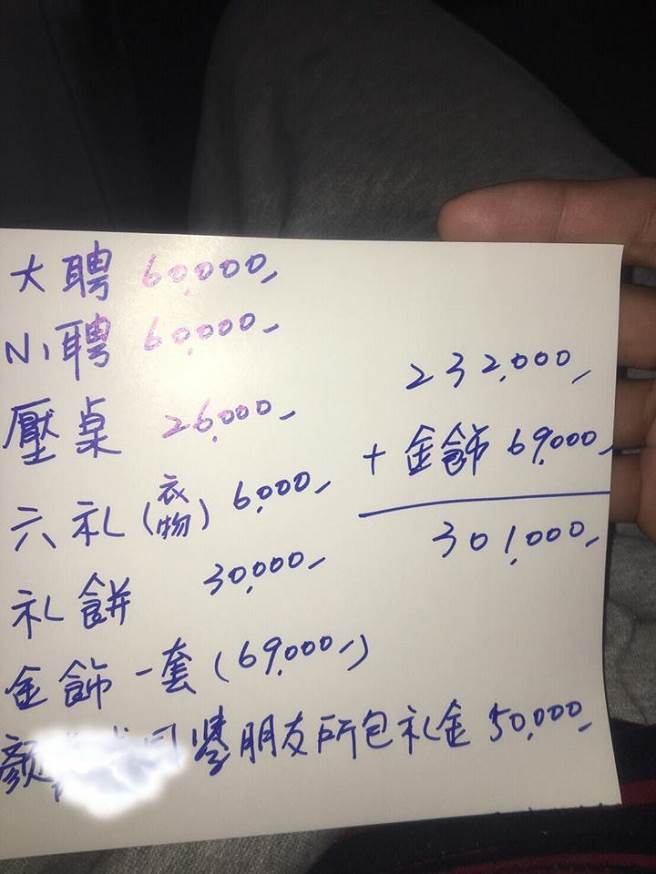 大聘 60,000,
小聘 60,000,
壓桌 26,000,
六礼(衣物) 6,000,
礼餅 30,000,
金飾一套(69,000,)
顏 朋友所包礼金 50,000,
232,000,
+金飾 69,000,
301,000,